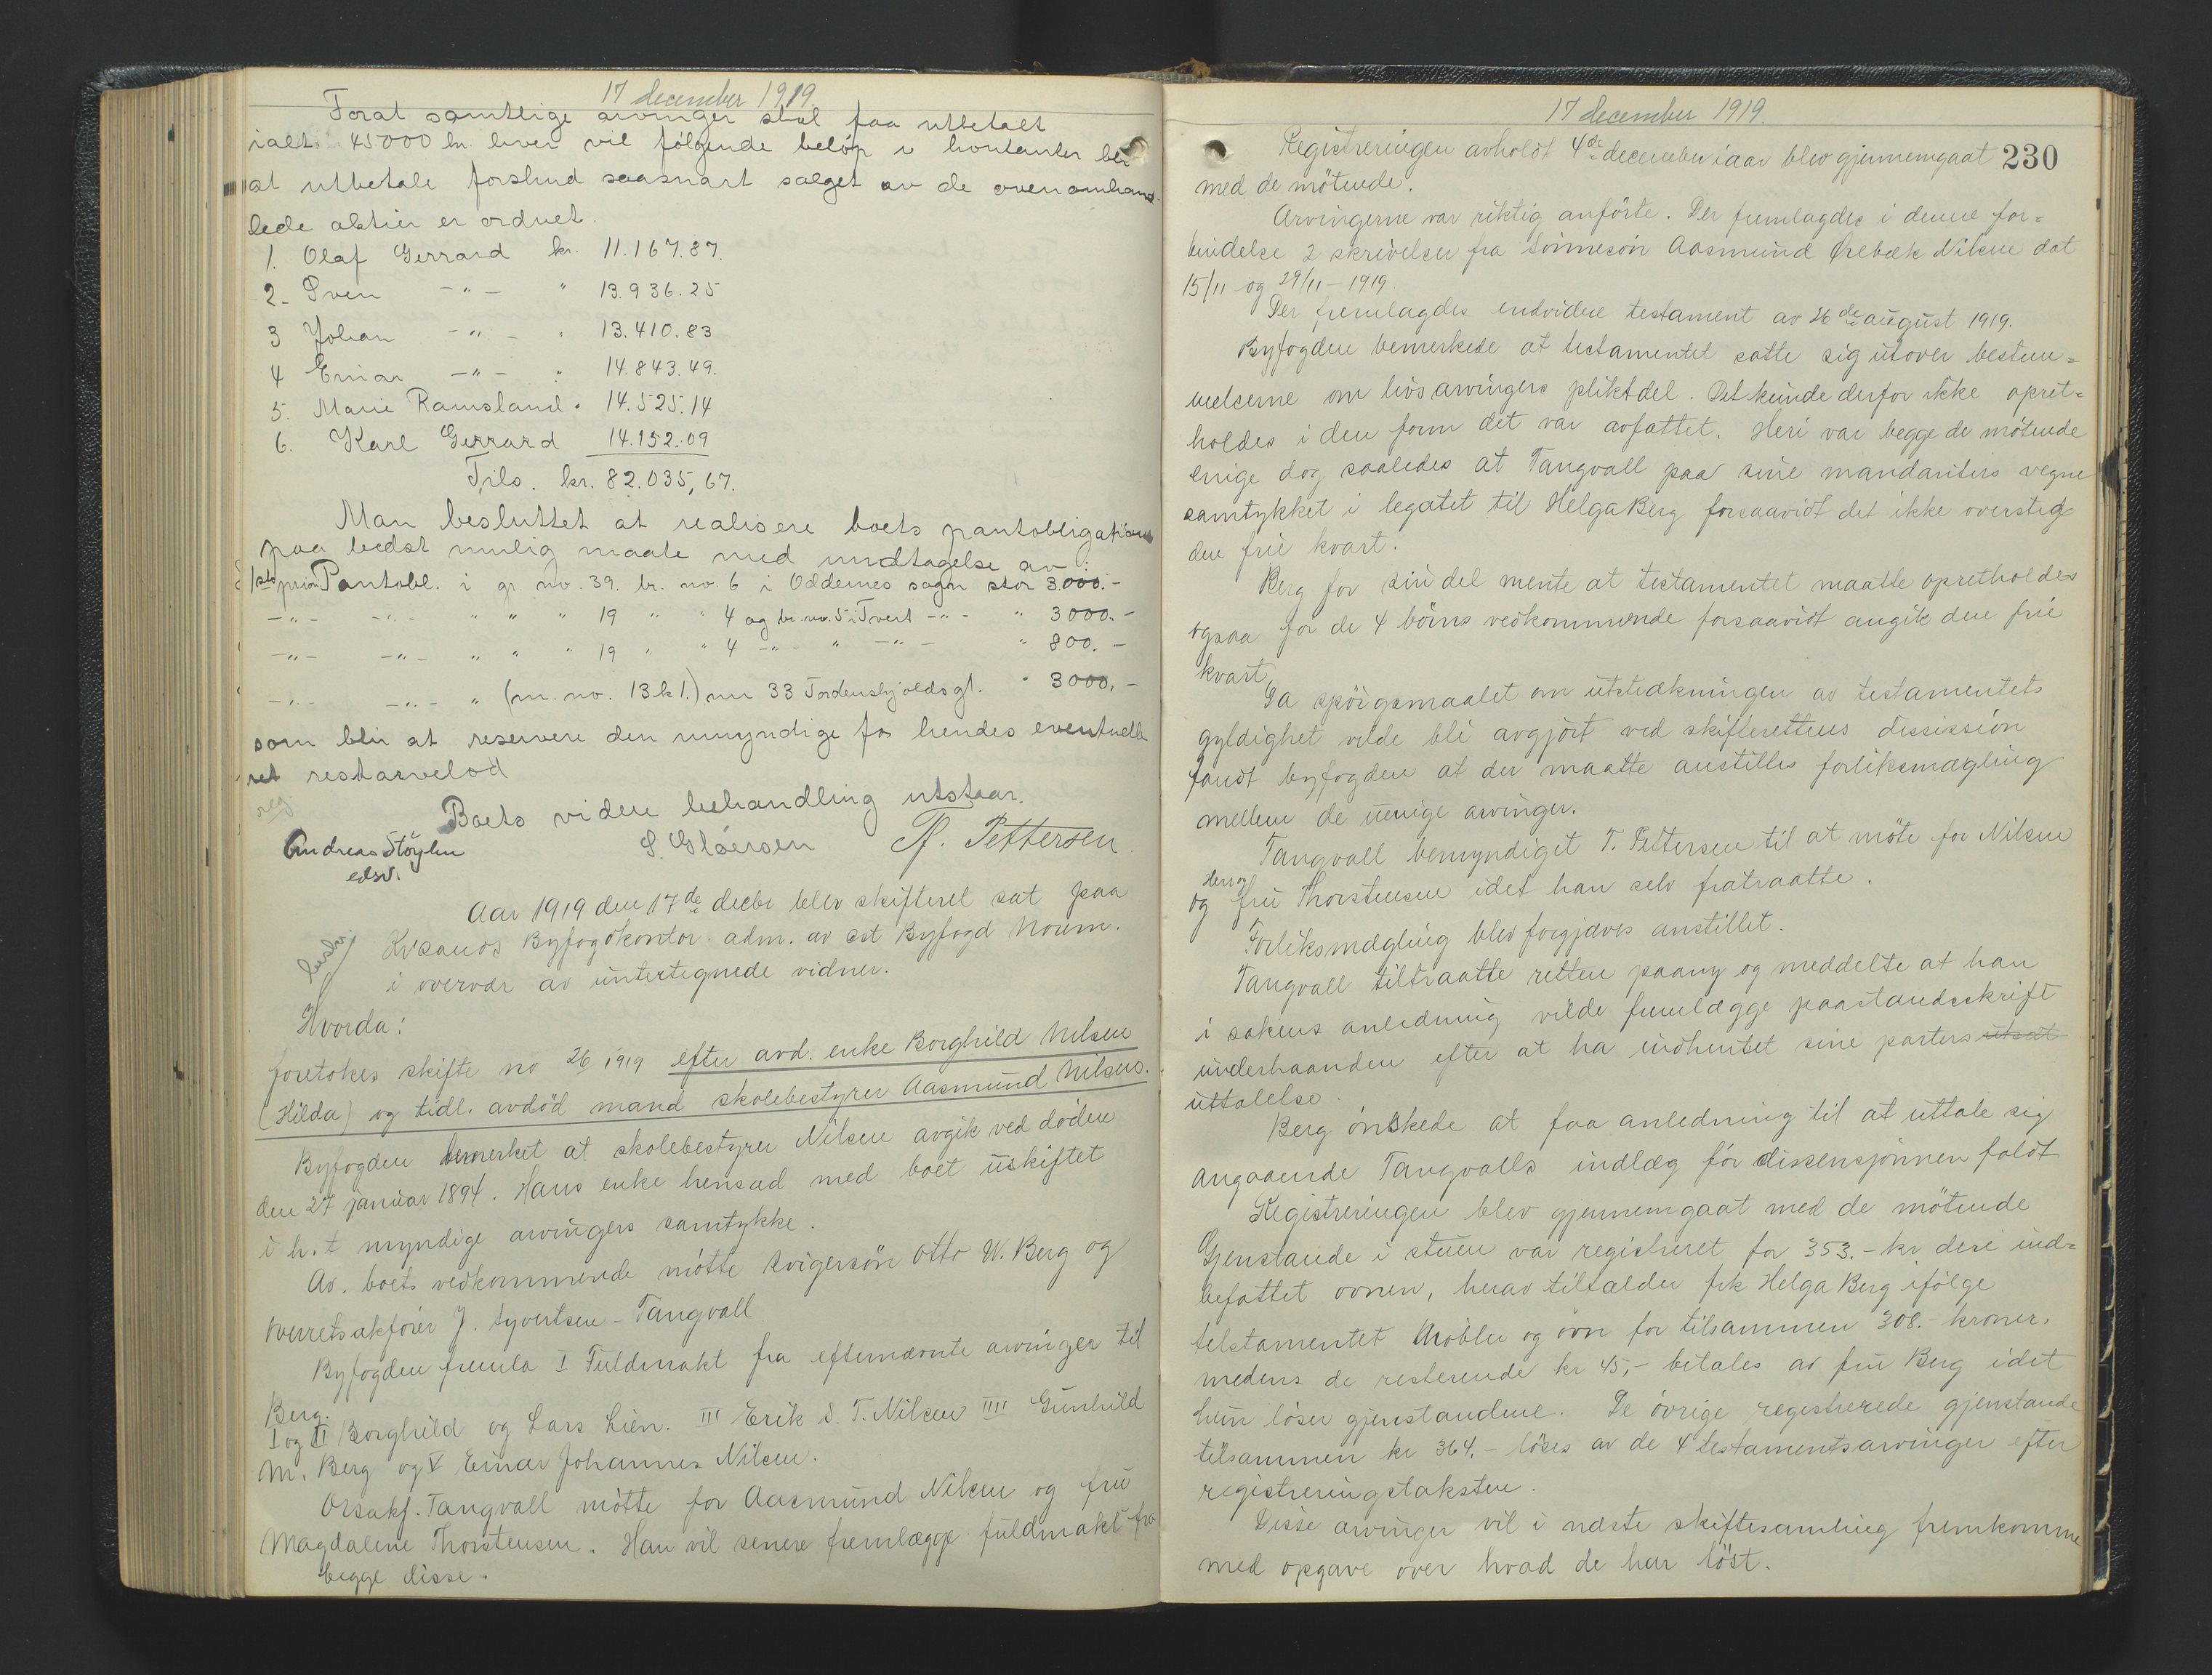 17 december 1919.
Forat samtlige arvinger skal faa utbetalt
ialt 45000 kr. hver vil følgende beløp i kontanter bli
at utbetale forskud saasnart salget av de ovenomhand
lede aktier er ordnet.
1. Olaf Gerrard kr. 11.167.87.
2. Sven -"- " 13.936.25
3 Johan -"- " 13.410.83
4 Einar -"- " 14.843.49.
5. Marie Ramsland " 14.525.14
6. Karl Gerrard 14.152.09
Tils. kr. 82.035,67.
Man besluttet at realisere boets pantobligationer
paa bedst mulig maate med undtagelse av:
1ste prior. Pantobl. i gr. no. 39. br. no. 6 i Oddernes sogn stor 3.000.-
-"- -"- " " " 19 " " 4 og br. no. 5 i Tveit -"- " 3000.-
-"- -"- " " " 19 " " 4 -"- " -"- " 800.-
-"- -"- " (m. no. 13 k 1.) nr 33 Tordenskjoldsgt. " 3000.-
som blir at reservere den umyndige for hendes eventuelle
ret restarvelod
reg.
Boets videre behandling utstaar.
Andreas Støylen S. Gløersen Th. Pettersen.
edsv.
Aar 1919 den 17de decbr blev skifteret sat paa
Krsands Byfogdkontor adm. av cst Byfogd Norem.
i overvær av undertegnede vidner.
Hvorda:
foretokes skifte no 26 1919 efter avd. enke Borghild Nilsen
(Hilda) og tidl. avdöd mand skolebestyrer Aasmund Nilsen.
Byfogden bemerket at skolebestyrer Nilsen avgik ved döden
den 27 januar 1894. Hans enke hensad med boet uskiftet
i h.t myndige arvingers samtykke.
Av. boets vedkommende mötte svigersön Otto W. Berg og
overretsakförer J. Syvertsen-Tangvall
Byfogden fremla I Fuldmakt fra efternævnte arvinger til
Berg.
I og II Borghild og Lars Lien. III Erik S. T. Nilsen IIII Gunhild
M. Berg og V Einar Johannes Nilsen.
Orsakf. Tangvall mötte for Aasmund Nilsen og fru
Magdalene Thorstensen. Han vil senere fremlægge fuldmakt fra
begge disse.
17 december 1919.
230
Registreringen avholdt 4de december iaar blev gjennemgaat
med de mötende.
Arvingerne var riktig anförte. Der fremlagdes i denne for=
bindelse 2 skrivelser fra sönnesön Aasmund Örebæk Nilsen dat
15/11 og 29/11-1919
Der fremlagdes endvidere testament av 26de august 1919.
Byfogden bemerkede at testamentet satte sig utover bestem=
melserne om livsarvingers pliktdel. Det kunde derfor ikke opret=
holdes i den form det var avfattet. Heri var begge de mötende
enige dog saaledes at Tangvall paa sine mandanters vegne
samtykket i legatet til Helga Berg forsaavidt det ikke oversteg
den frie kvart.
Berg for sin del mente at testamentet maatte opretholdes
ogsaa for de 4 börns vedkommende forsaavidt angik den frie
kvart.
Da spörgsmaalet om utstrækningen av testamentets
gyldighet vilde bli avgjört ved skifterettens dessission
fandt byfogden at der maatte anstilles forliksmægling
mellem de uenige arvinger.
Tangvall bemyndiget T. Pettersen til at möte for Nilsen
Herr og
og fru Thorstensen idet han selv fratraatte.
Forliksmægling blev forgjæves anstillet.
Tangvall tiltraatte retten paany og meddelte at han
i sakens anledning vilde fremlægge paastandsskrift
underhaanden efter at ha indhentet sine parters utsat
uttalelse.
Berg önskede at faa anledning til at uttale sig
angaaende Tangvalls indlæg för dissensjonnen faldt
Registreringen blev gjennemgaat med de mötende
Gjenstande i stuen var registreret for 353.- kr deri ind=
befattet ovnen, herav tilfalder frk Helga Berg ifölge
telstamentet Möbler og ovn for tilsammen 308.- kroner.
medens de resterende kr 45,- betales av fru Berg idet
hun löser gjenstandene. De övrige registrerede gjenstande
tilsammen kr 364.- löses av de 4 testamentsarvinger efter
registreringstaksten.
Disse arvinger vil i næste skiftesamling fremkomme
med opgave over hvad de har löst.